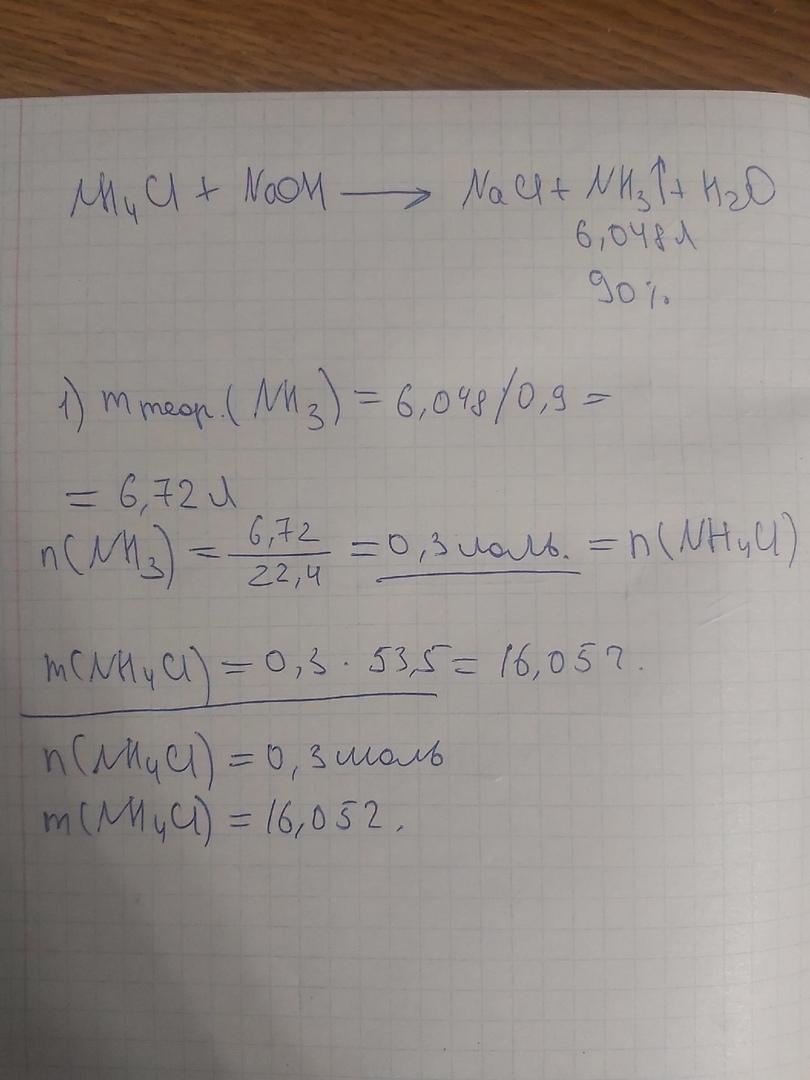 NH₄Cl + NaOH ⟶ NaCl + NH₃↑ + H₂O
6,048л
90%
1) m теор. (NH₃) = 6,048/0,9 =
= 6,72 л
n(NH₃) = 6,72/22,4 = 0,3 моль. = n(NH₄Cl)
m(NH₄Cl) = 0,3 · 53,5 = 16,05 г.
n(NH₄Cl) = 0,3 моль
m(NH₄Cl) = 16,05 г.